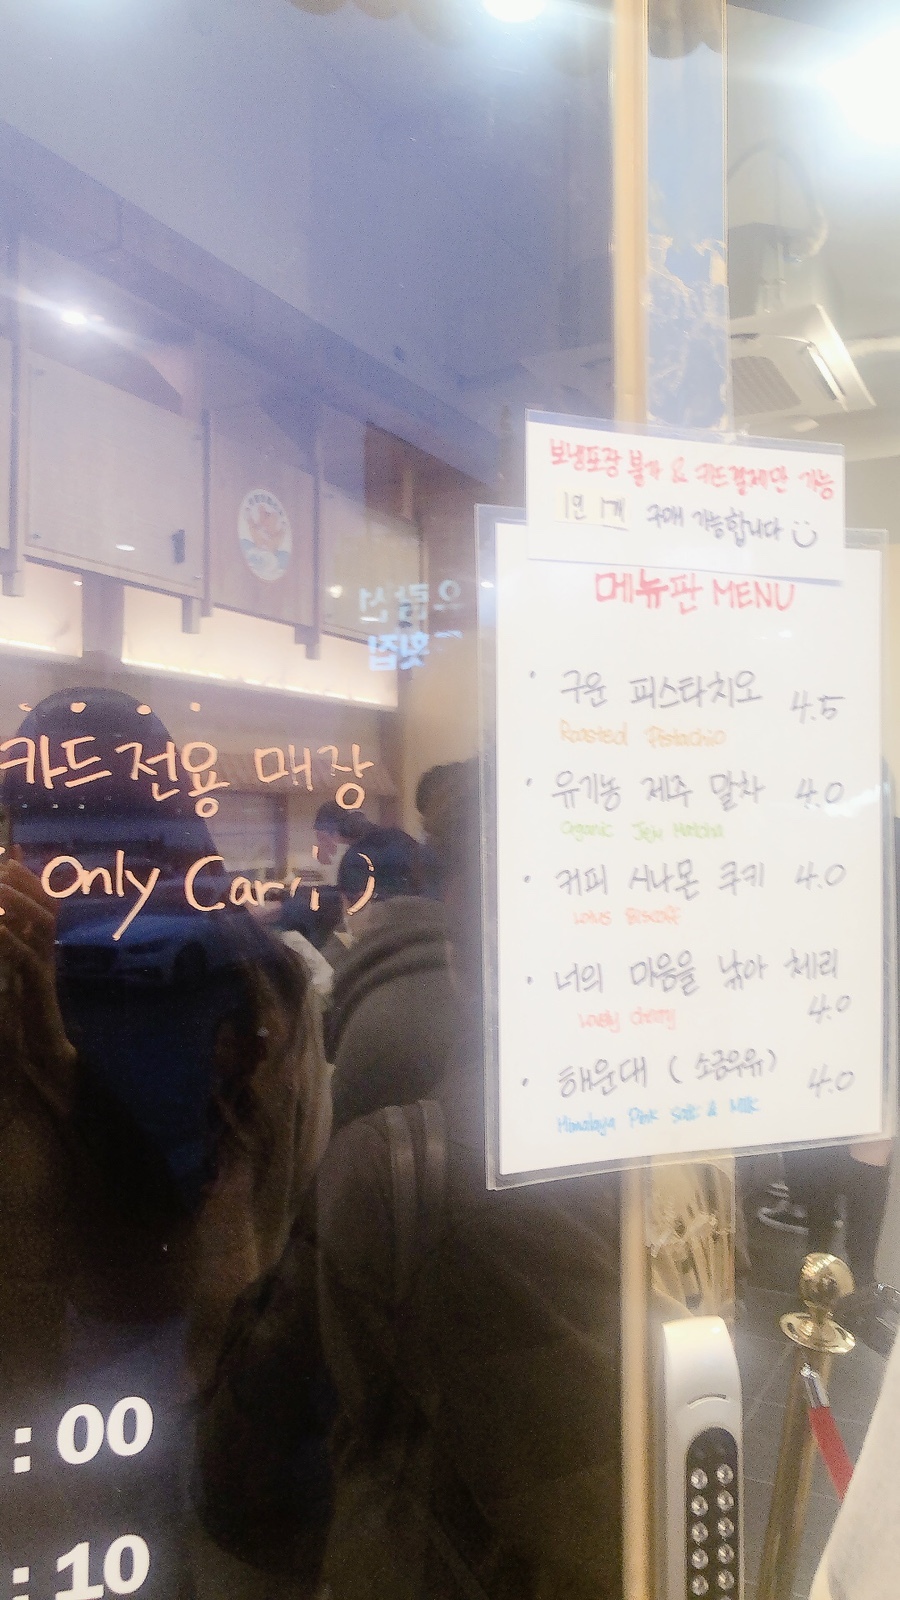 보냉포장 불가 & 카드결제만 가능
1인 1개 구매 가능합니다
메뉴판 MENU
구운 피스타치오 4.5
Roasted Pistachio
유기농 제주 말차 4.0
Organic Jeju Matcha
커피 시나몬 쿠키 4.0
Lotus Biscoff
너의 마음을 낚아 체리
4.0
Lovely cherry
해운대 (소금우유) 4.0
Himalaya Pink Salt & Milk
카드전용 매장
Only Car
: 00
: 10